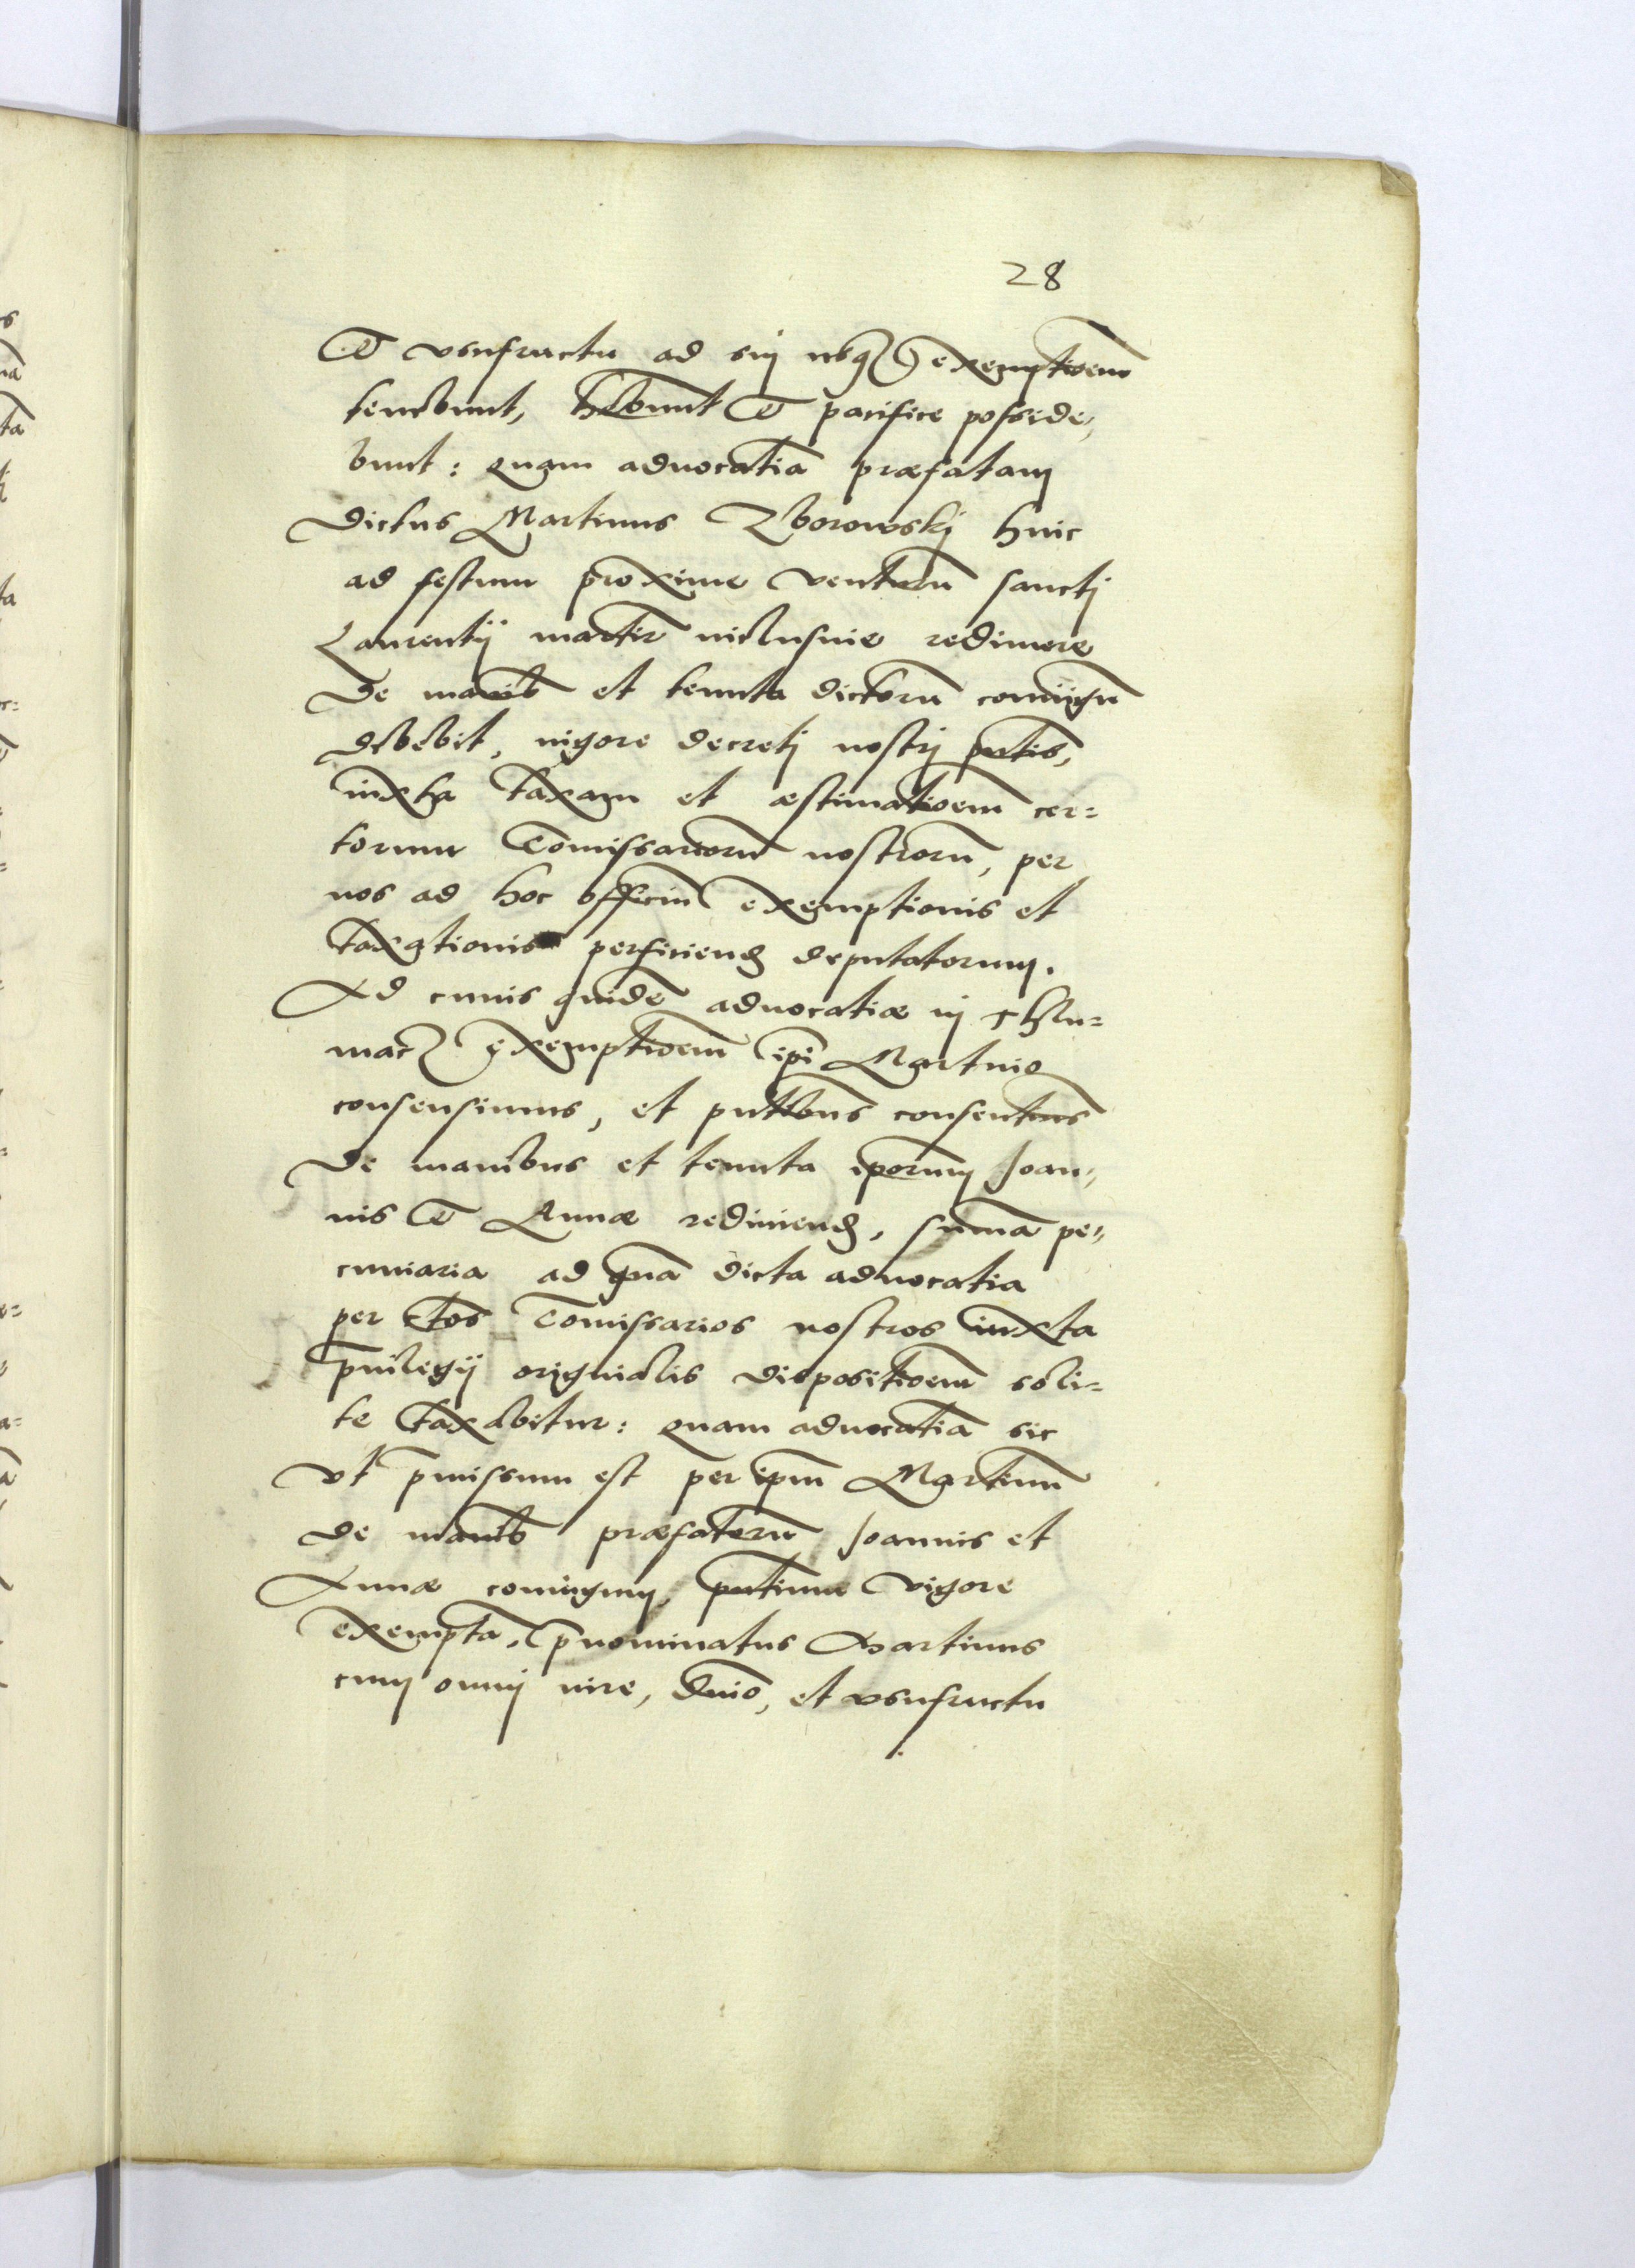 28
Et vsufructu ad eius vsq(ue) exemptioem
tenebunt, hebunt et pacifice posside,
bunt: quam aduocatiã præfatam
dictus Martinus Zborowskj hinc
ad festum proxime venturũ sanctj
Laurentij martir̃ inclusiue redimere
de manib et tenuta dictorũ coniugũ
debebit, vigore decretj nostrj pntis,
iuxta taxam et æstimatioem cer=
torum Comissariorũ nostrorũ, per
nos ad hoc officiũ exemptionis et
taxationis perficiend deputatorum.
Ad cuius quidẽ aduocatiæ in Thlu=
macz exemptioem ipi Martino
consensimus, et pntibus consentims
de manibus et tenuta iporum Joan,
nis et Annæ redimend, summa pe,,
cuniaria ad quã dicta aduocatia
per ctos Comissarios nostros iuxta
puilegij originalis dispositioem soli=
te taxabitur: quam aduocatiã sic
vt pmissum est per ipm Martinũ
de manib præfatorũ Joannis et
Annæ coniugum, pntium vigore
exemptã, pnominatus Martinus
cum omni iure, dnio, et vsufructu